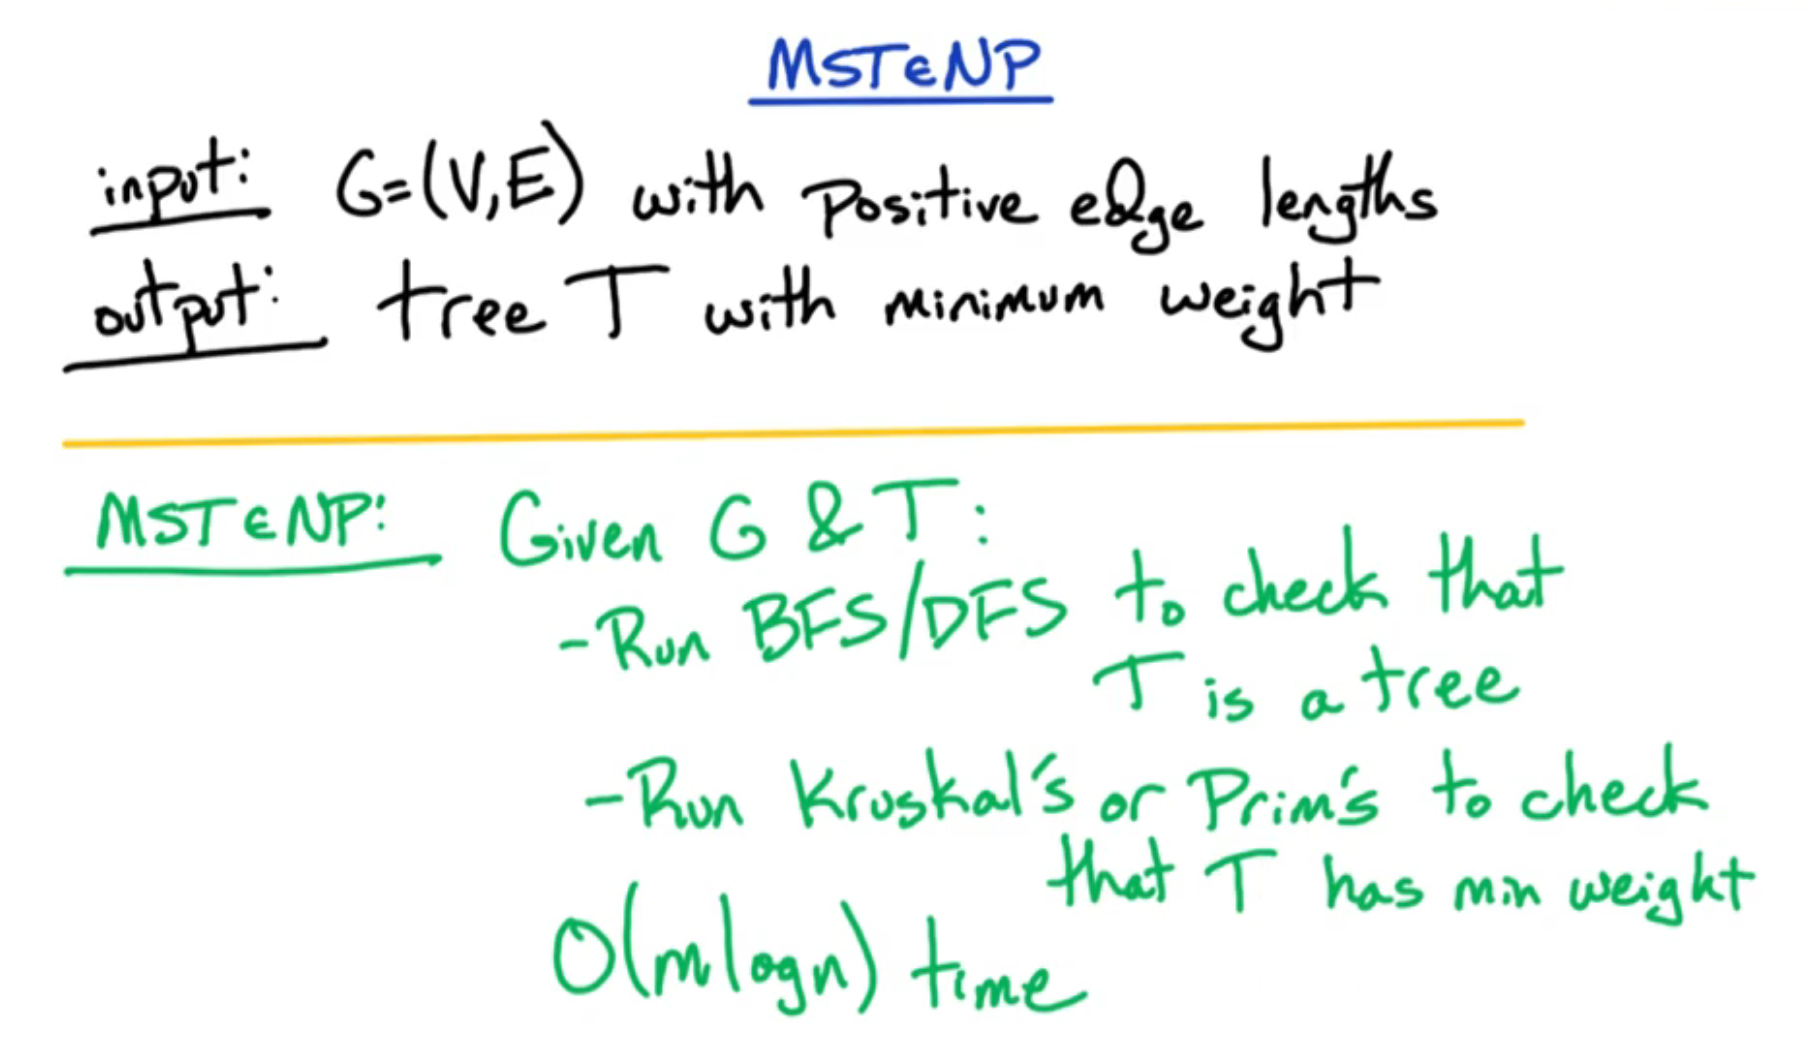 MST∈NP
input: G=(V,E) with positive edge lengths
output: tree T with minimum weight
MST∈NP: Given G & T:
-Run BFS/DFS to check that
T is a tree
-Run Kruskal's or Prim's to check
that T has min weight
O(mlogn) time